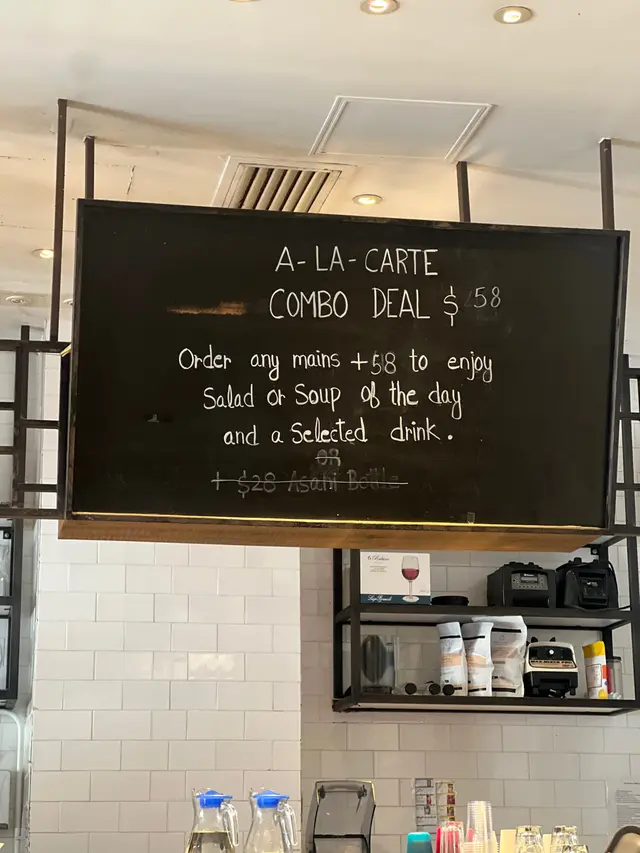 A-LA-CARTE
COMBO DEAL $ 58
Order any mains +58 to enjoy
Salad or Soup of the day
and a Selected drink.
OR
+ $28 Asahi Bottle